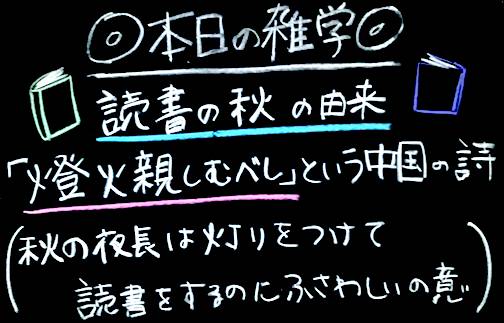 ◎本日の雑学◎
読書の秋の由来
「燈火親しむべし」という中国の詩
(秋の夜長は灯りをつけて
読書をするのにふさわしいの意)